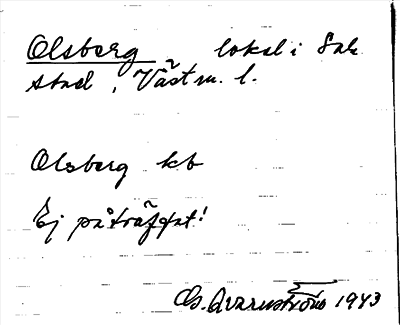 Olsberg lokal i Sala
stad, Västm. l.
Olsberg kb
Ej påträffat!
1943